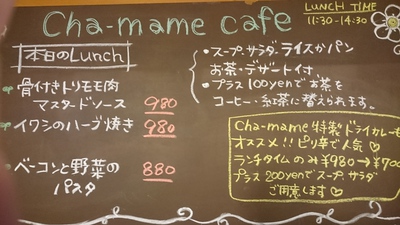 Cha-mame cafe
LUNCH TIME
11:30-14:30
本日のLunch
骨付きトリモモ肉
マスタードソース 980
イワシのハーブ焼き 980
ベーコンと野菜の 880
パスタ
・スープ、サラダ、ライスかパン
お茶・デザート付、
・プラス100yenでお茶を
コーヒー・紅茶に替えられます。
Cha-mame 特製ドライカレーも
オススメ!!ピリ辛で人気♡
ランチタイムのみ¥980→¥700
プラス200yenでスープ、サラダ
ご用意します♡